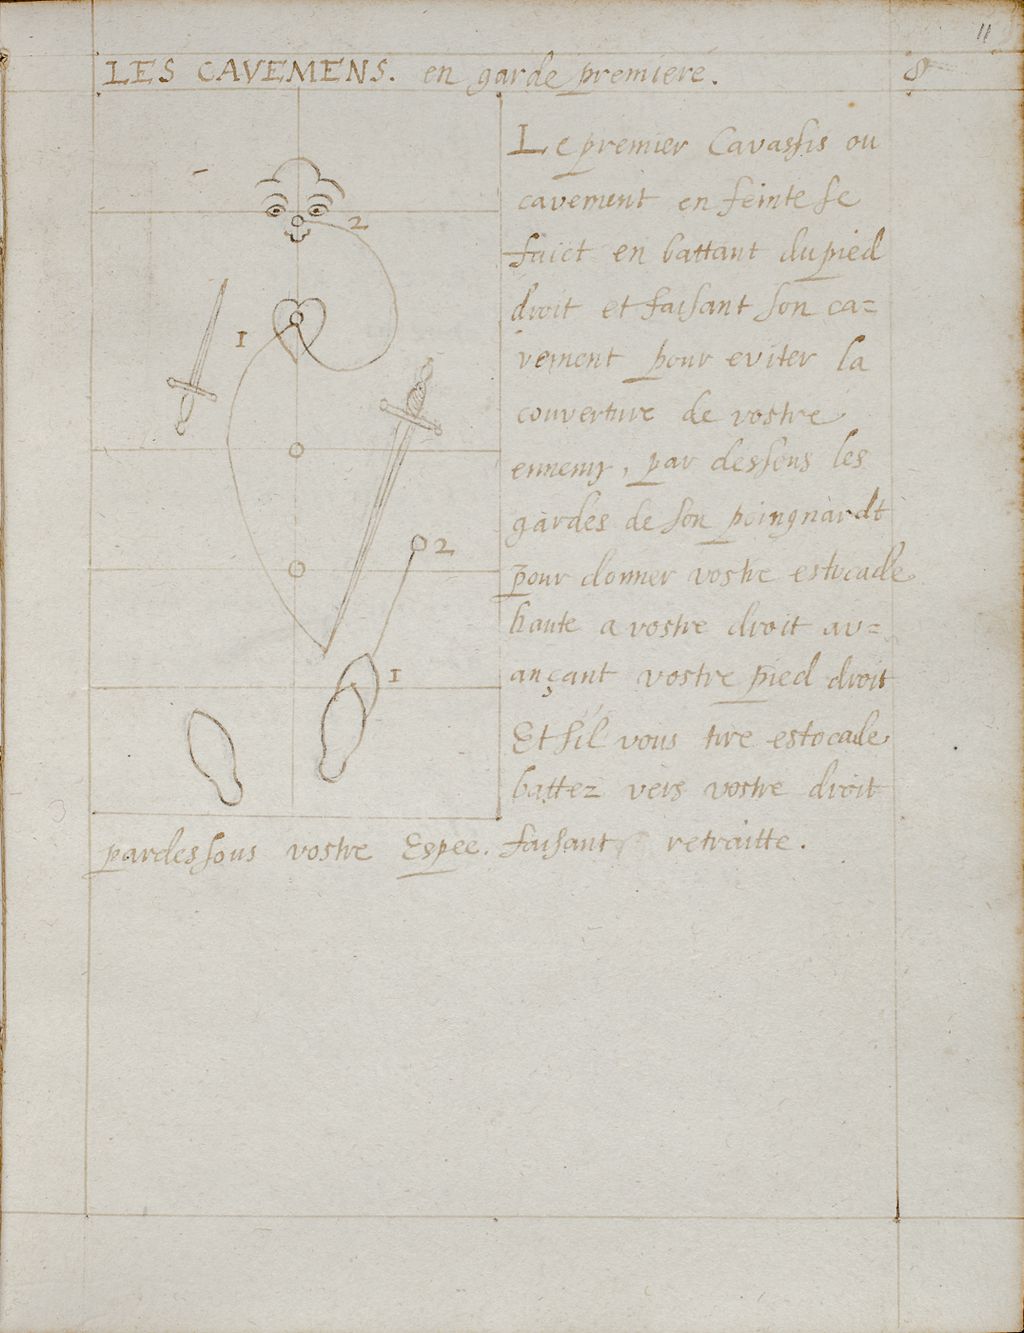 11
LES CAVEMENS. en garde premiere.
8
Le premier Cavassis ou
cavement en feinte se
faict en battant du pied
droit et faisant son ca=
vement pour eviter la
couverture de vostre
ennemy, par dessous les
gardes de son poingnardt
pour donner vostre estocade
haute a vostre droit av=
ançant vostre pied droit
Et s'il vous tire estocade
battez vers vostre droit
pardessous vostre Espee. faisant retraitte.
2
1
2
1